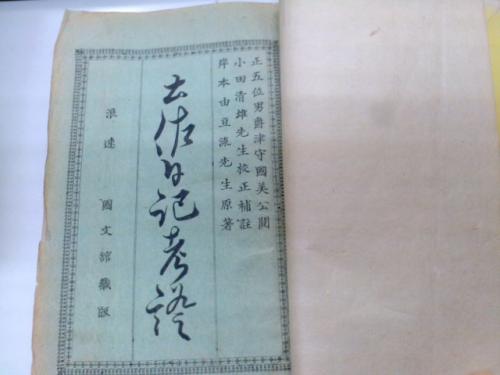 正五位男爵津守國美公閱
小田清雄先生校正補註
岸本由豆流先生原著
土佐日記考證
浪速 國文館藏版